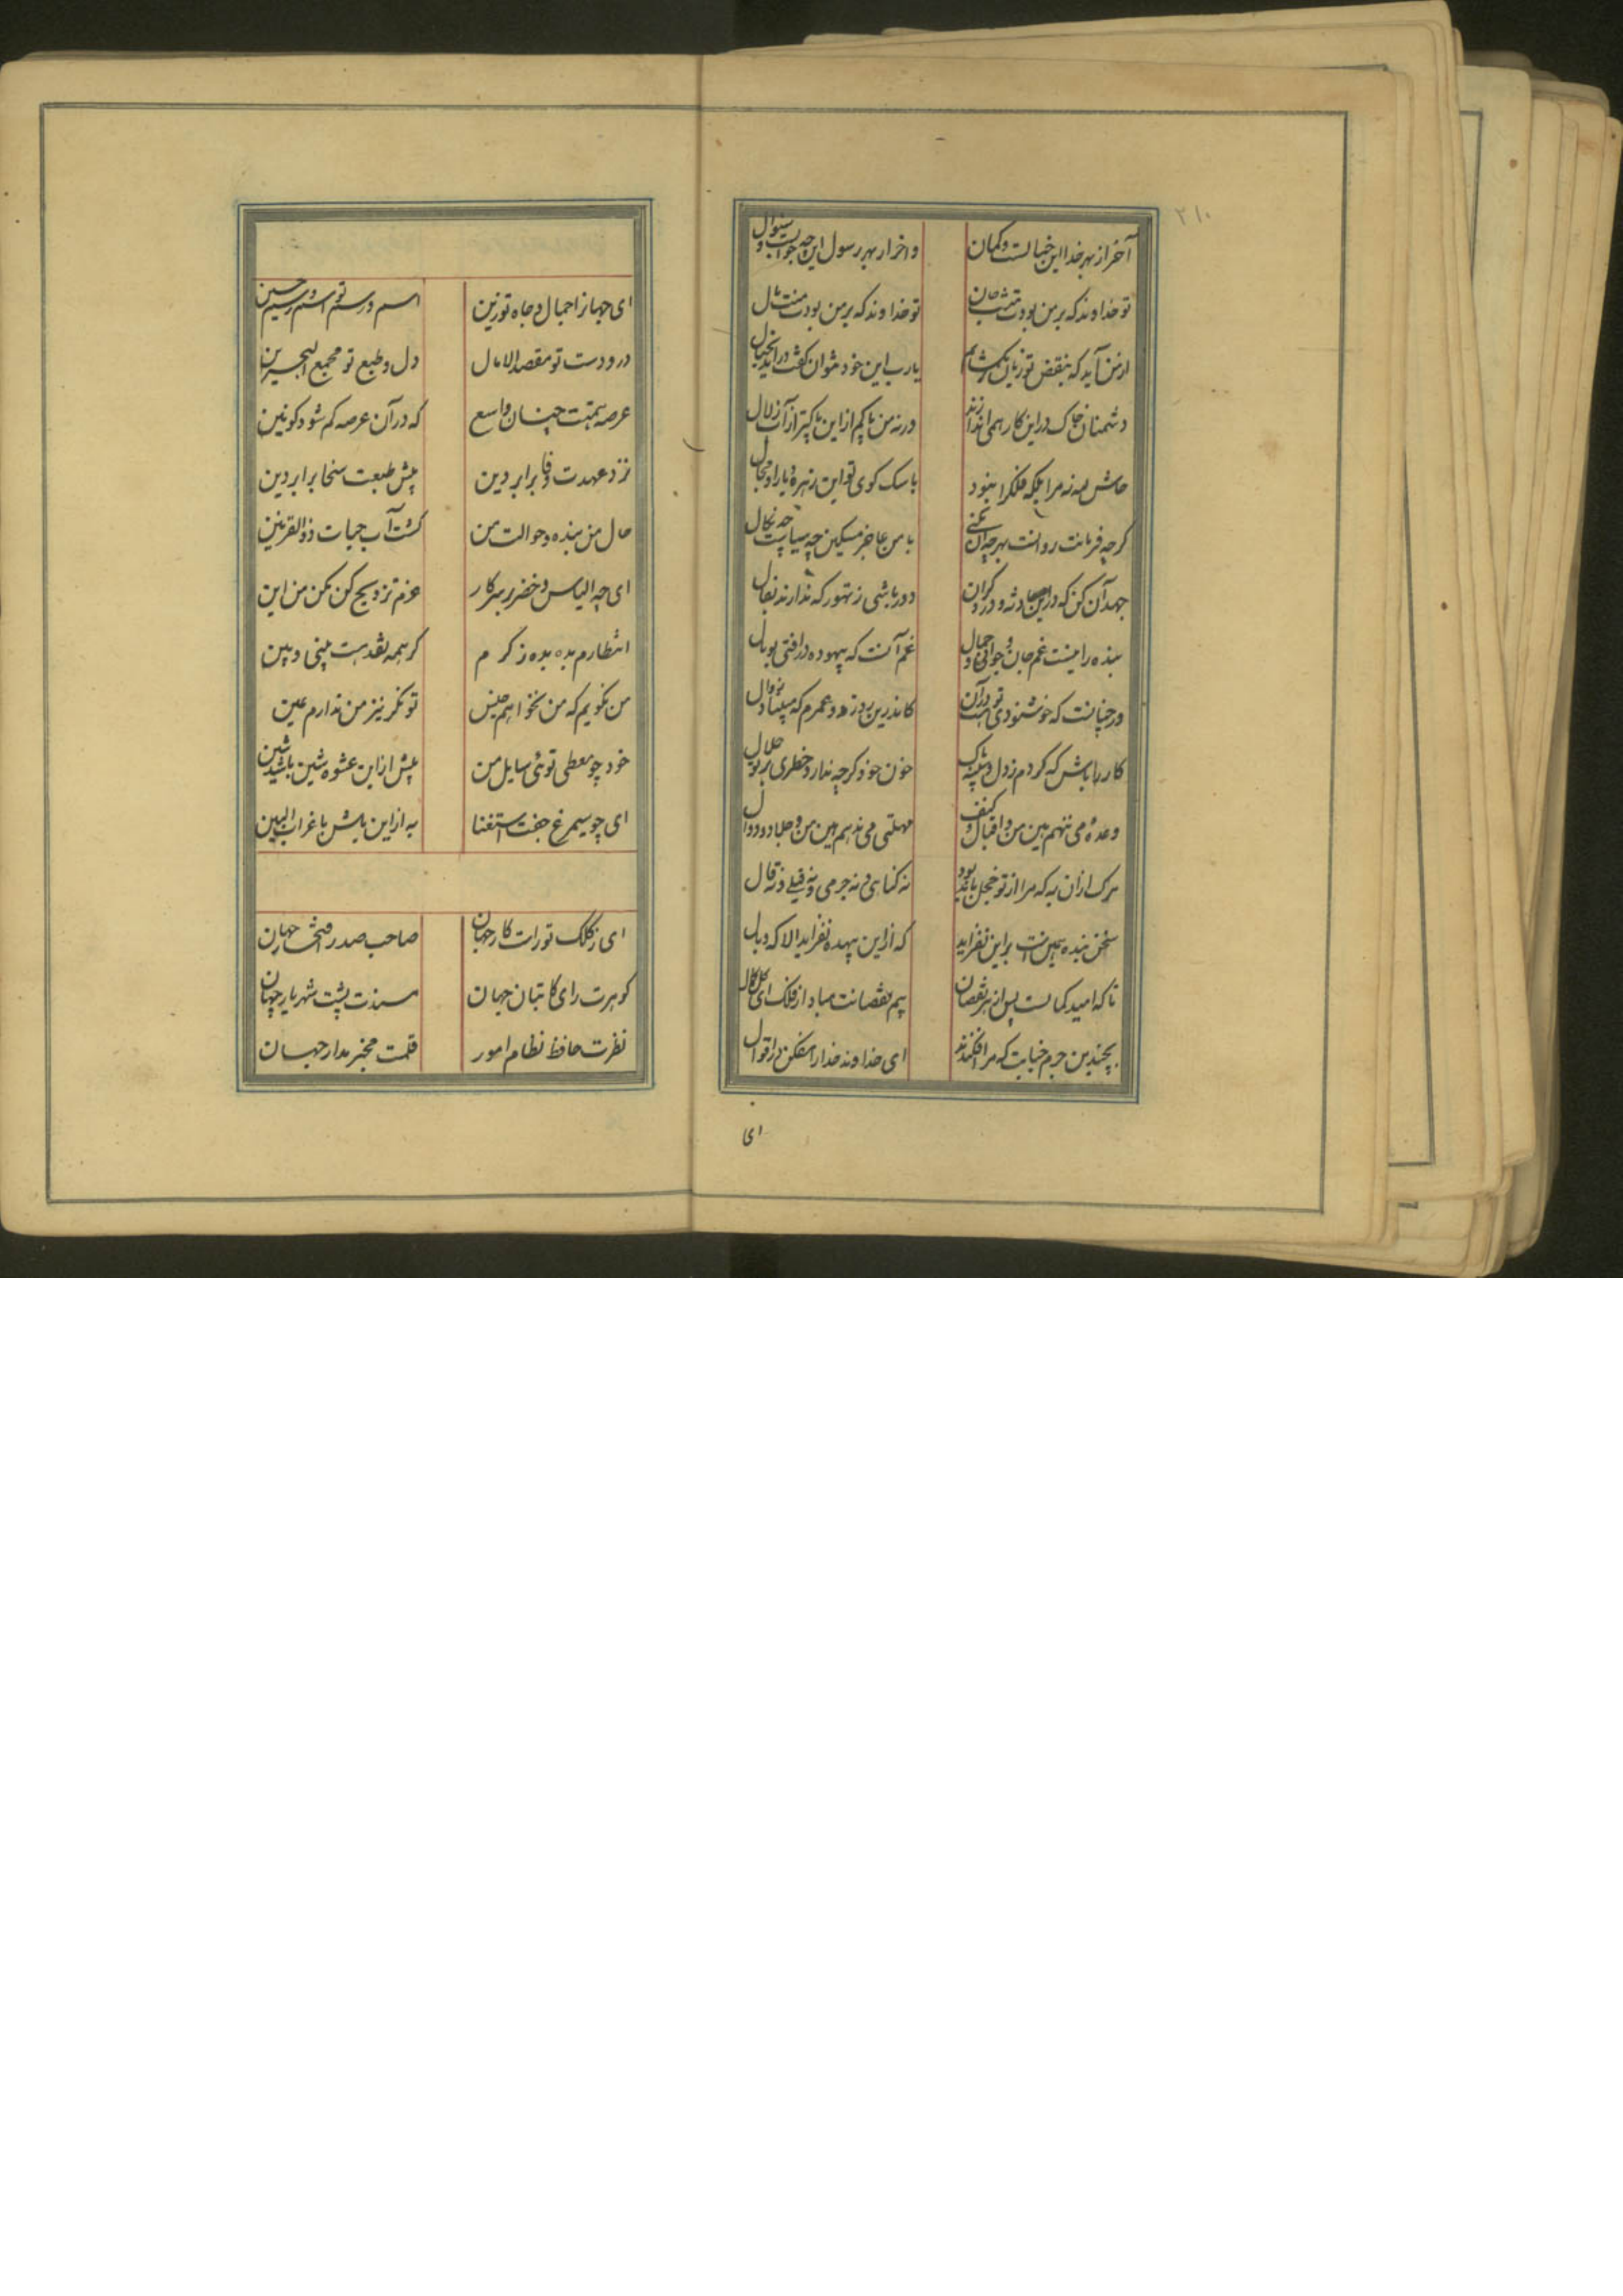 ۲۱۰
آخر از بهر خدا این خیالست و گمان
واخر از بهر رسول این چه جوابست و سئوال
تو خداوند که بر من بودت منت جان
تو خداوند که بر من بودت منت مال
از من آید که بنقض تو زبان بگشایم
یا رب این خود بتوان گفت در آید بخیال
دشمنان خاک در این کار همی اندازند
ورنه من پاکم از این پاکتر از آب زلال
حاش لله نه مرا بلکه فلکرا نبود
با سگ کوی تو این زهره و یارا و مجال
گرچه فرمانت روانست بهرچه آن بکنی
با من عاجز مسکین چه سیاست چه نکال
جهد آن کن که در این حادثه و درد گران
دور باشی ز تهور که ندارند بفال
بنده را نیست غم جان و جوانی و جمال
غم آنست که بیهوده در افتی بوبال
ور چنانست که خوشنودی تو در آنست
کاندرین روز دو عمرم که مبیناد زوال
کار را باش که کردم ز دل و بی شک
خون خود گرچه ندارد خطری بر تو حلال
وعده می ننهم بین من و اقبال و کنف
مهلتی می ندهم بین من و جلاد و دوال
مرگ از ان به که مرا از تو خجل باید بود
نه گناهی و نه جرمی و نه قیلی و نه قال
سخن بنده همین است بر این نفزاید
که از این بیهده نفزاید الا که وبال
تا که امید کمالست پس از هر نقصان
بیم نقصانت مباد از فلک ای کل کمال
بچندین جرم خیانت که مرا افکندند
ای خداوند خدا را مفکن در اقوال
ای
ای جهانرا جمال و جاه تو زین
اسم و رسم تو اسم و رسم حسین
در و دست تو مقصد الامال
دل و طبع تو مجمع البحرین
عرصه همتت چنان واسع
که در آن عرصه کم شود کونین
نزد عهدت وفا برابر دین
پیش طبعت سخا برابر دین
حال من بنده و حوالت من
گشت آب حیات ذوالقرنین
ای چه الیاس و خضر بر سر کار
عزم ترویج کن مکن من این
انتظارم مده بده ز کرم
گر همه نقدهست پنی و پین
من نگویم که من نخواهم جنس
تو نگر نیز من ندارم عین
خود چو معطی توئی و سایل من
بیش از این عشوه شین باشد شین
ای چو سیمرغ جفت استغنا
به از این باش با غراب البین
ای ز کلک تو راست کار جهان
صاحب صدر افتخار جهان
گوهرت رای کاتبان جهان
مسندت پشت شهریار جهان
نظرت حافظ نظام امور
قلمت مخبر مدار جهان